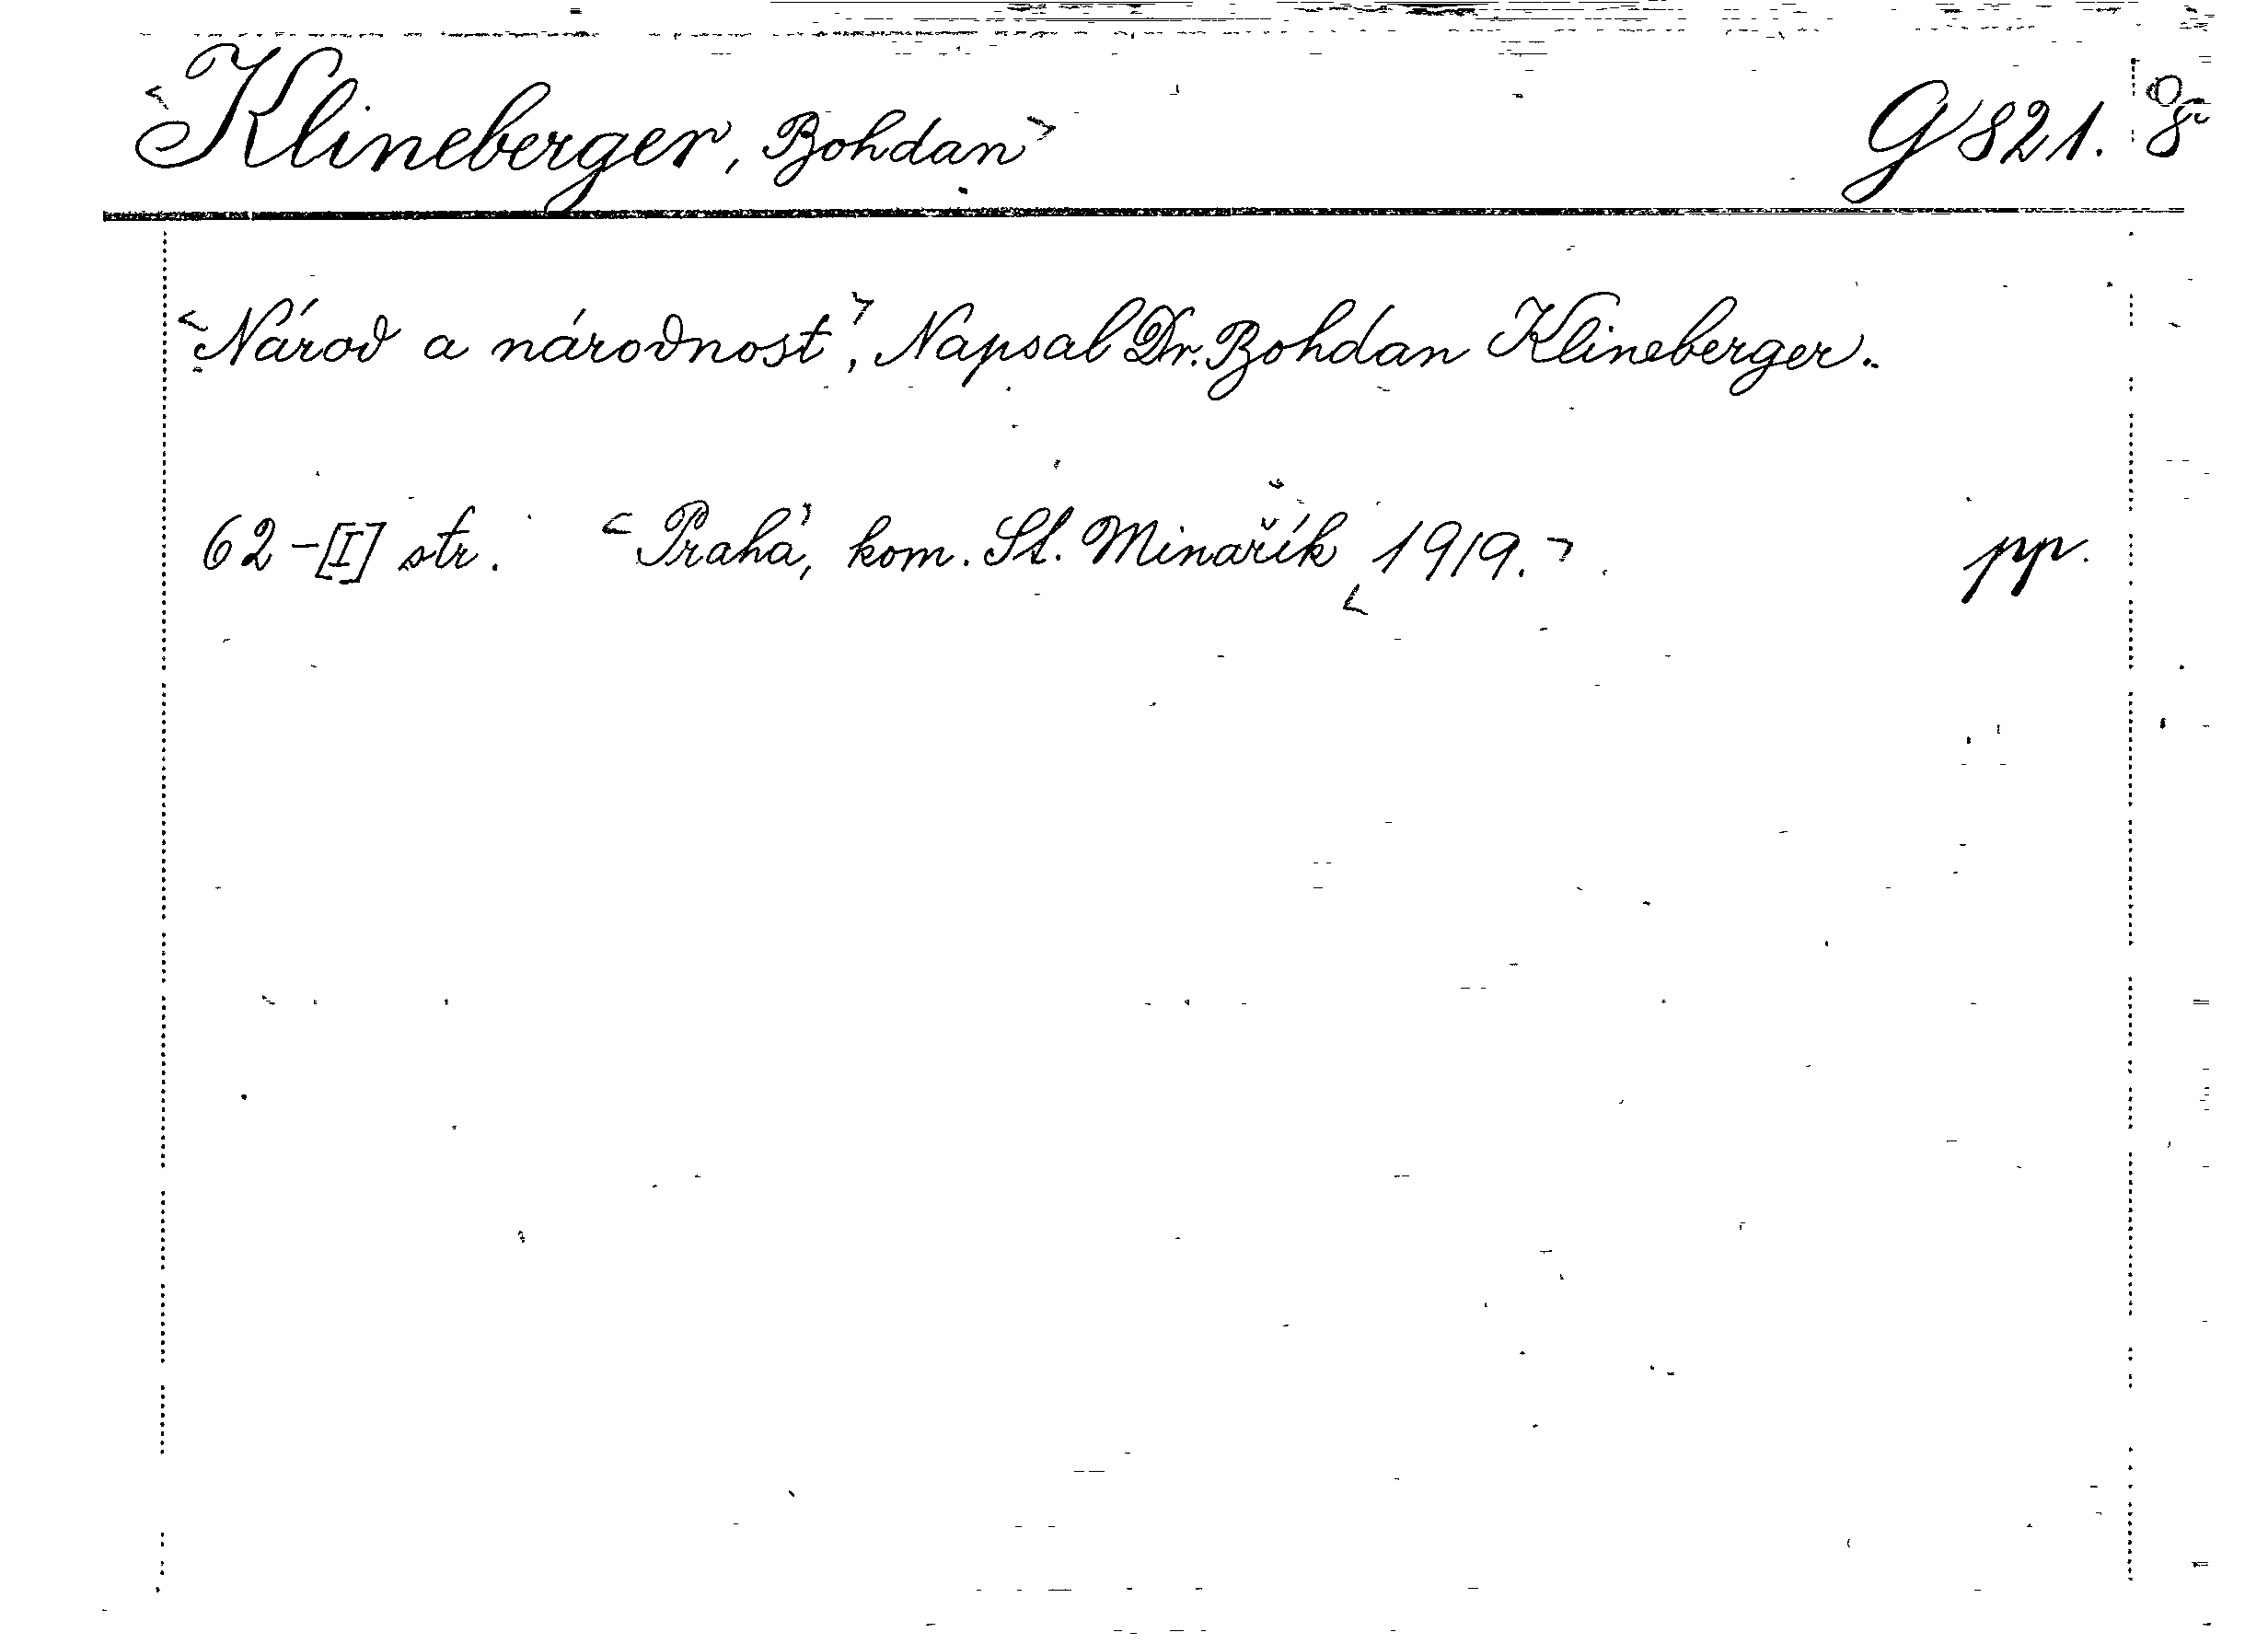 Klineberger, Bohdan G 821. 8
Národ a národnost, Napsal Dr. Bohdan Klineberger.
62-[I] str. Praha, kom. St. Minařík 1919. pp.